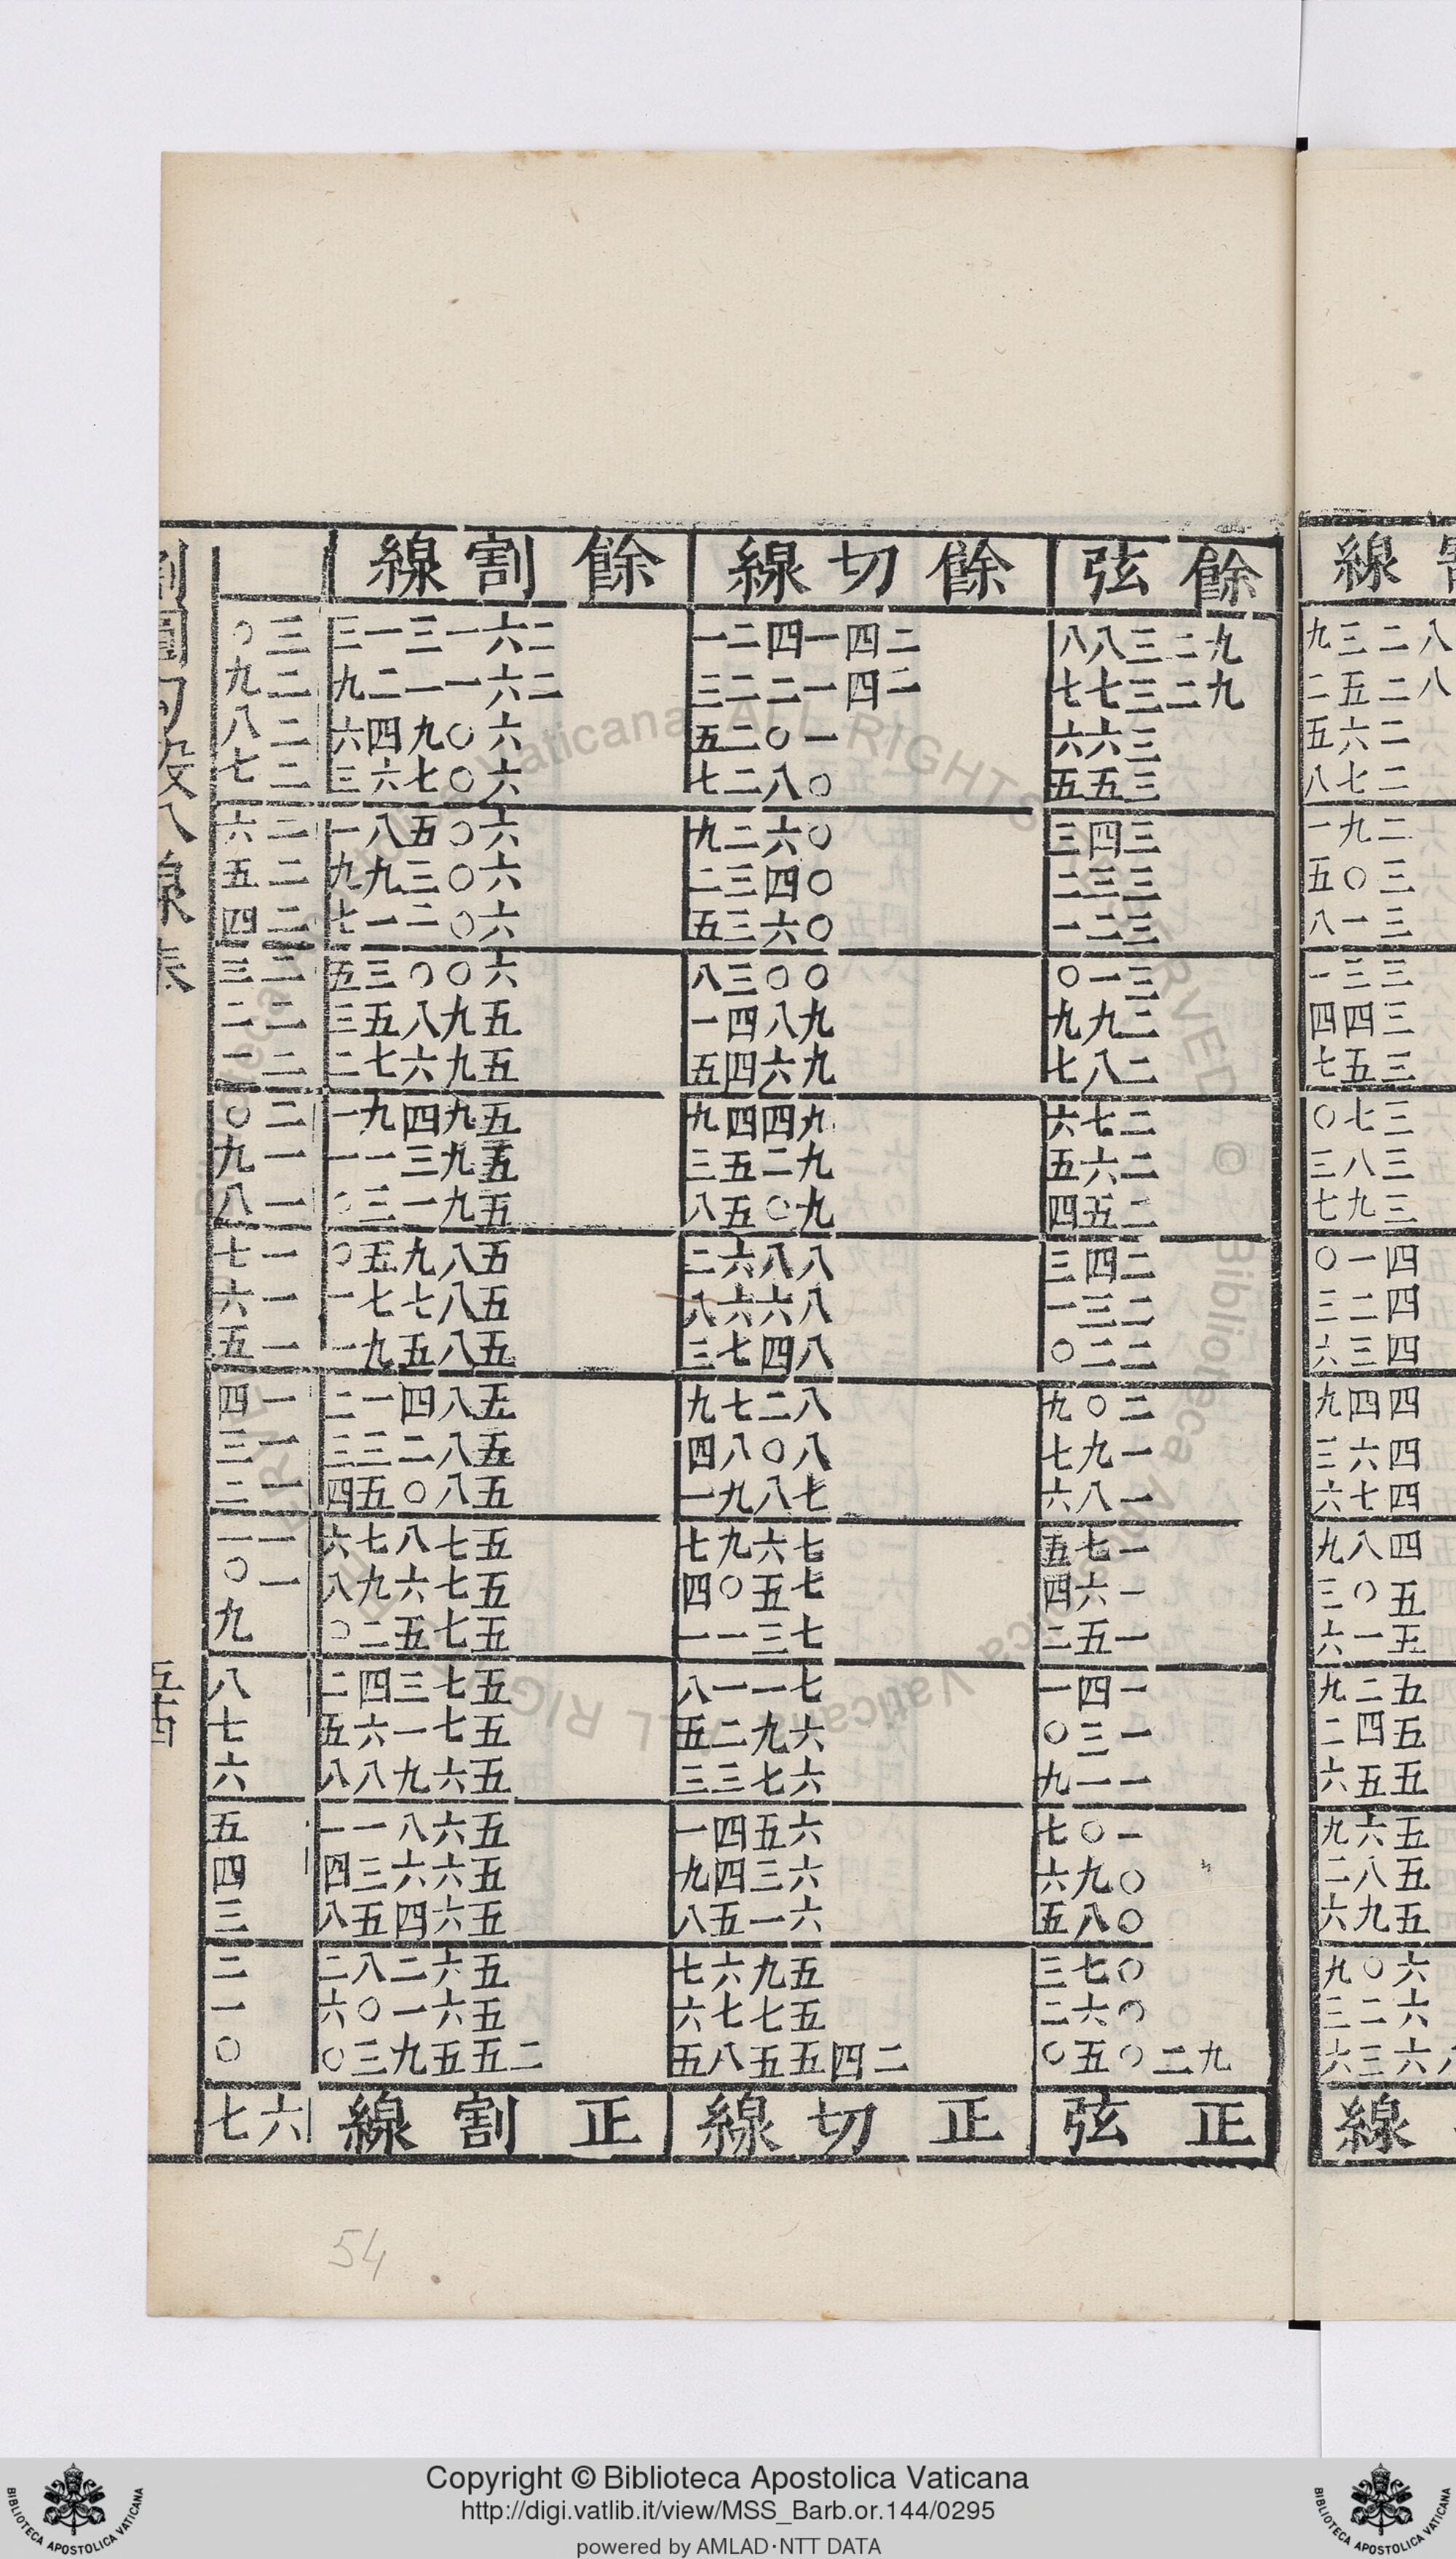 線
八二三九
八二五二
二六五
二七八
二九一
三〇五
三一八
三三一
三四四
三五七
三七〇
三八三
三九七
四一〇
四二三
四三六
四四九
四六三
四七六
四八九
五〇三
五一六
五二九
五四二
五五六
五六九
五八二
五九六
六〇九
六二三
六三六
線
餘弦 餘切線 餘割線
九二三八八 二四一四二一 二六一三一三 三〇
九二三七七 二四一二二三 二六一一二九 二九
三六六 一〇二五 六〇九四六 二八
三五五 〇八二七 六〇七六三 二七
三四三 〇六二九 六〇五八一 二六
三三二 〇四三二 六〇三九九 二五
三二一 〇六三五 六〇二一七 二四
三一〇 〇〇三八 六〇〇三五 二三
二九九 九八四一 五九八五三 二二
二八七 九六四五 五九六七二 二一
二七六 九四四九 五九四九一 二〇
二六五 九二五三 五九三一一 一九
二五四 九〇五八 五九一三〇 一八
二四三 八八六二 五八九五〇 一七
二三一 八六六八 五八七七一 一六
二二〇 八四七三 五八五九一 一五
二〇九 八二七九 五八四一二 一四
一九七 八〇八四 五八二三三 一三
一八六 七八九一 五八〇五四 一二
一七五 七六九七 五七八七六 一一
一六四 七五〇四 五七六九八 一〇
一五二 七三一一 五七五二〇 九
一四一 七一一八 五七三四二 八
一三〇 六九二五 五七一六五 七
一一九 六七三三 五六九八八 六
一〇七 六五四一 五六八一一 五
〇九六 六三四九 五六六三四 四
〇八五 六一五八 五六四五八 三
〇七三 五九六七 五六二八二 二
〇六二 五七七六 五六一〇六 一
九二〇五〇 二四五五八五 二五五九三〇 〇
正弦 正切線 正割線 六七
54
Copyright © Biblioteca Apostolica Vaticana
http://digi.vatlib.it/view/MSS_Barb.or.144/0295
powered by AMLAD·NTT DATA
BIBLIOTECA APOSTOLICA VATICANA
BIBLIOTECA APOSTOLICA VATICANA